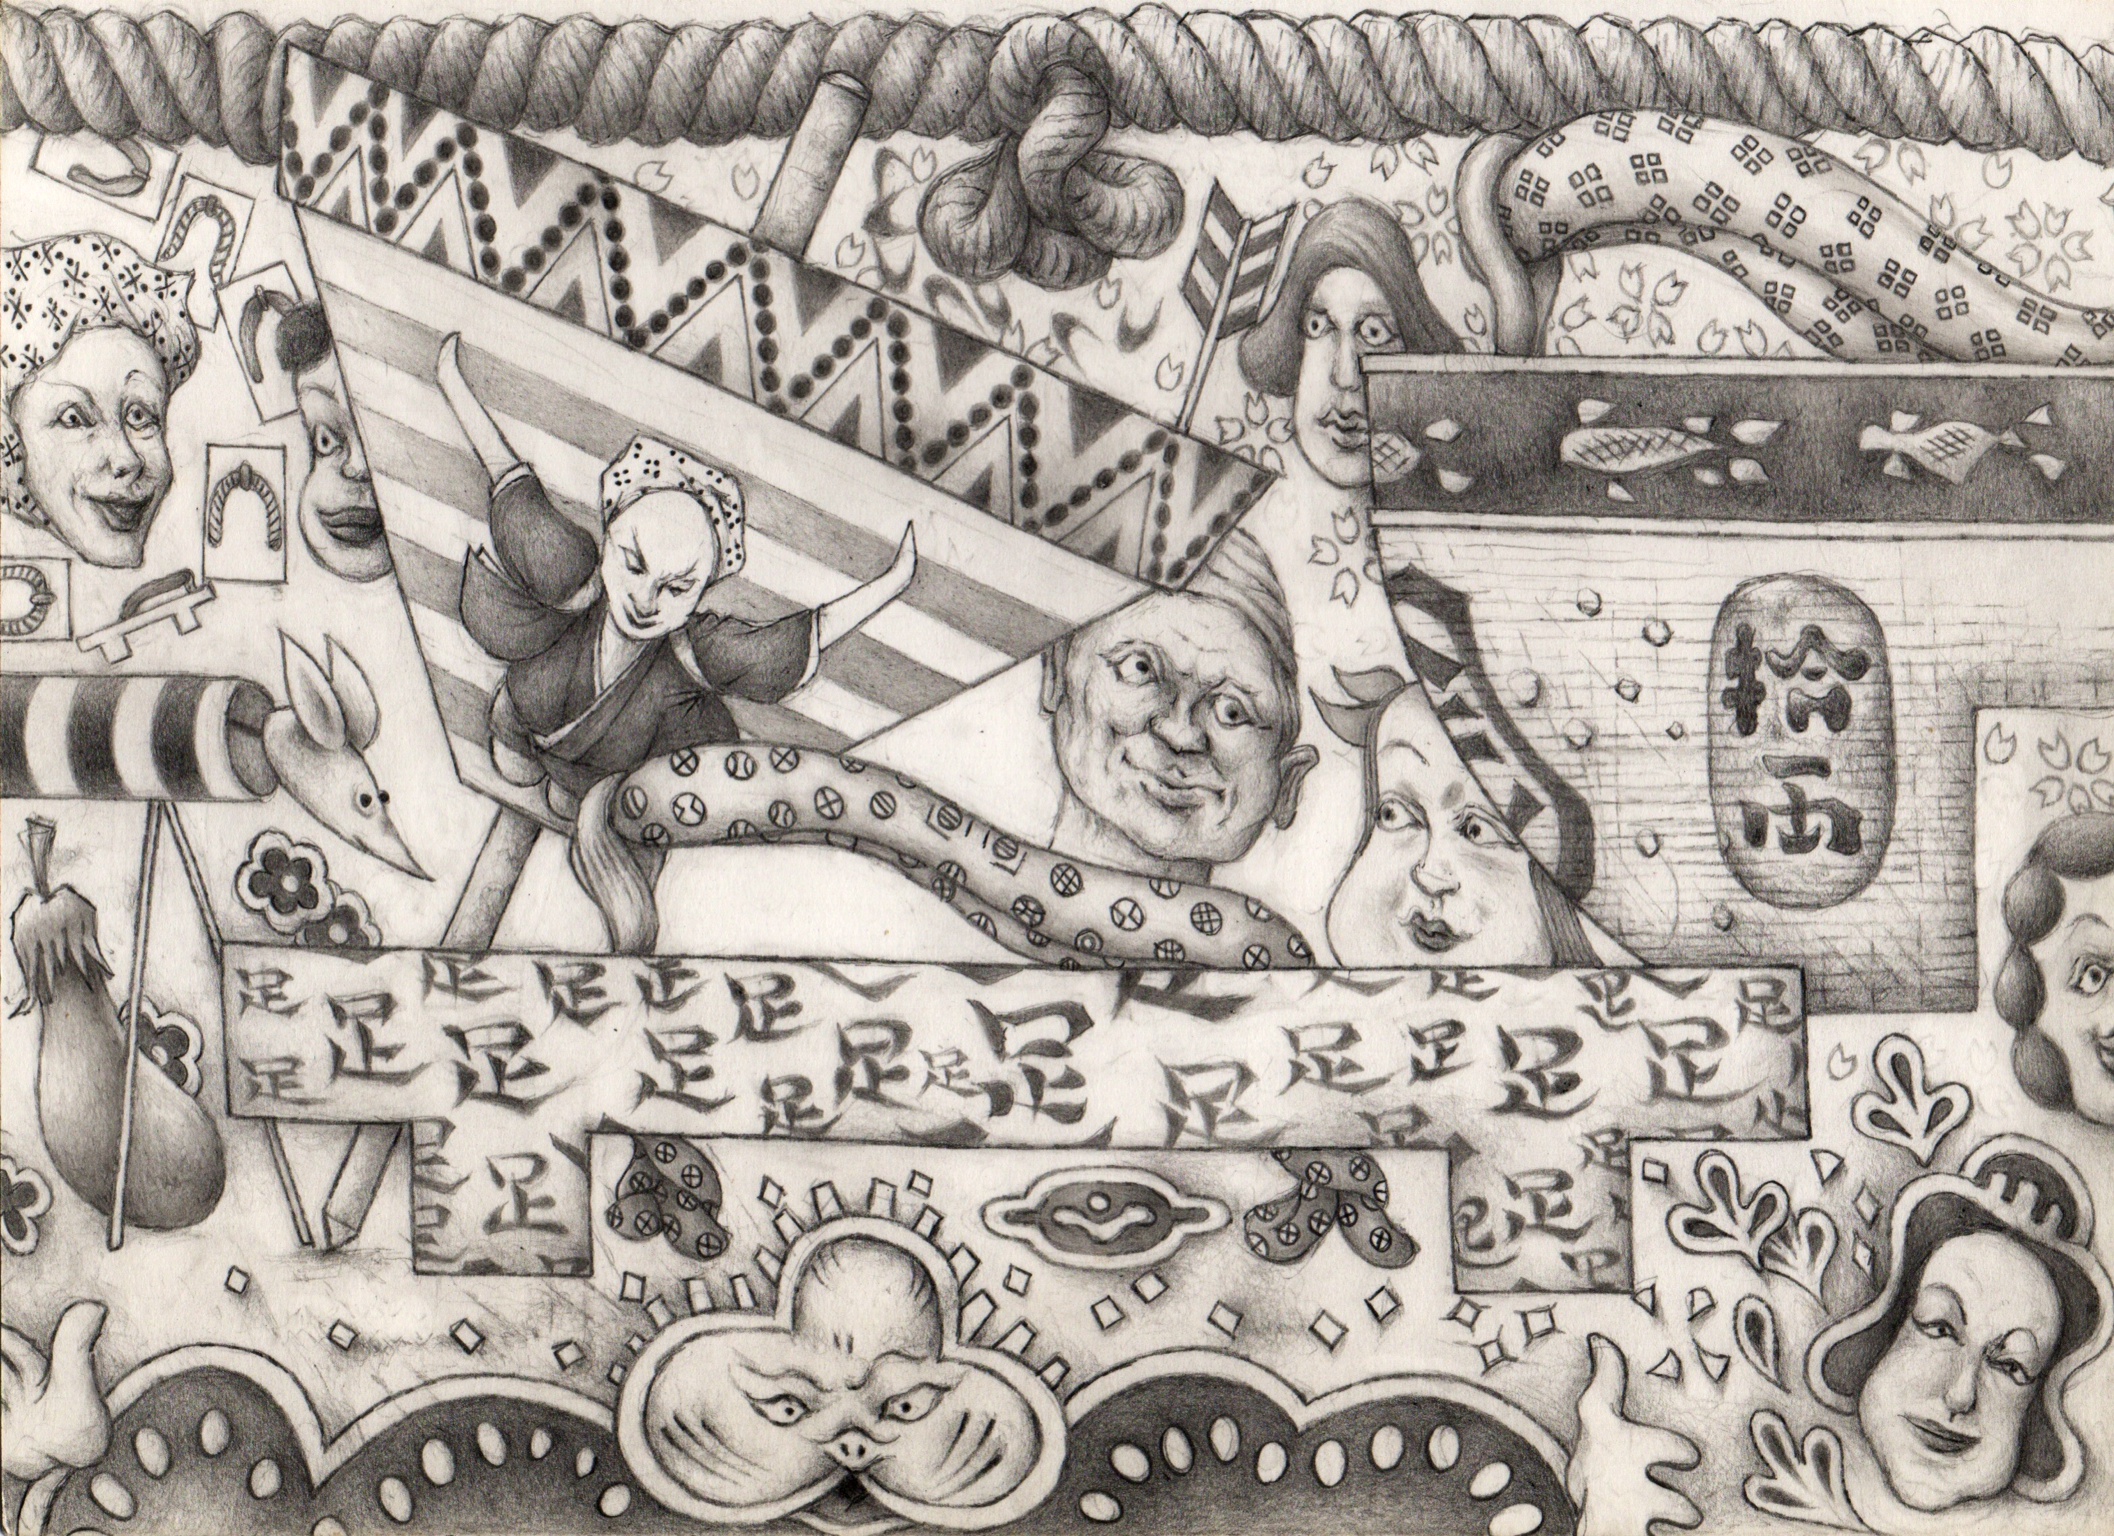 拾両
足 足 足 足 足 足 足
足 足 足 足 足 足 足 足 足 足 足 足
足 足